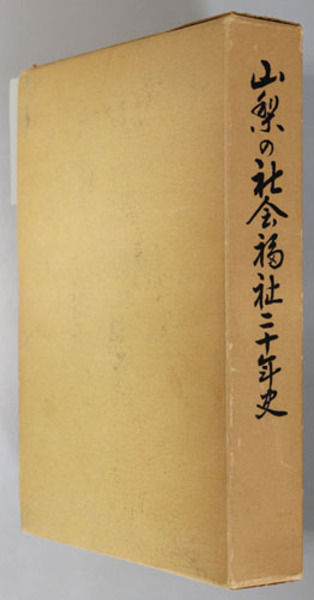 山梨の社会福祉二十年史